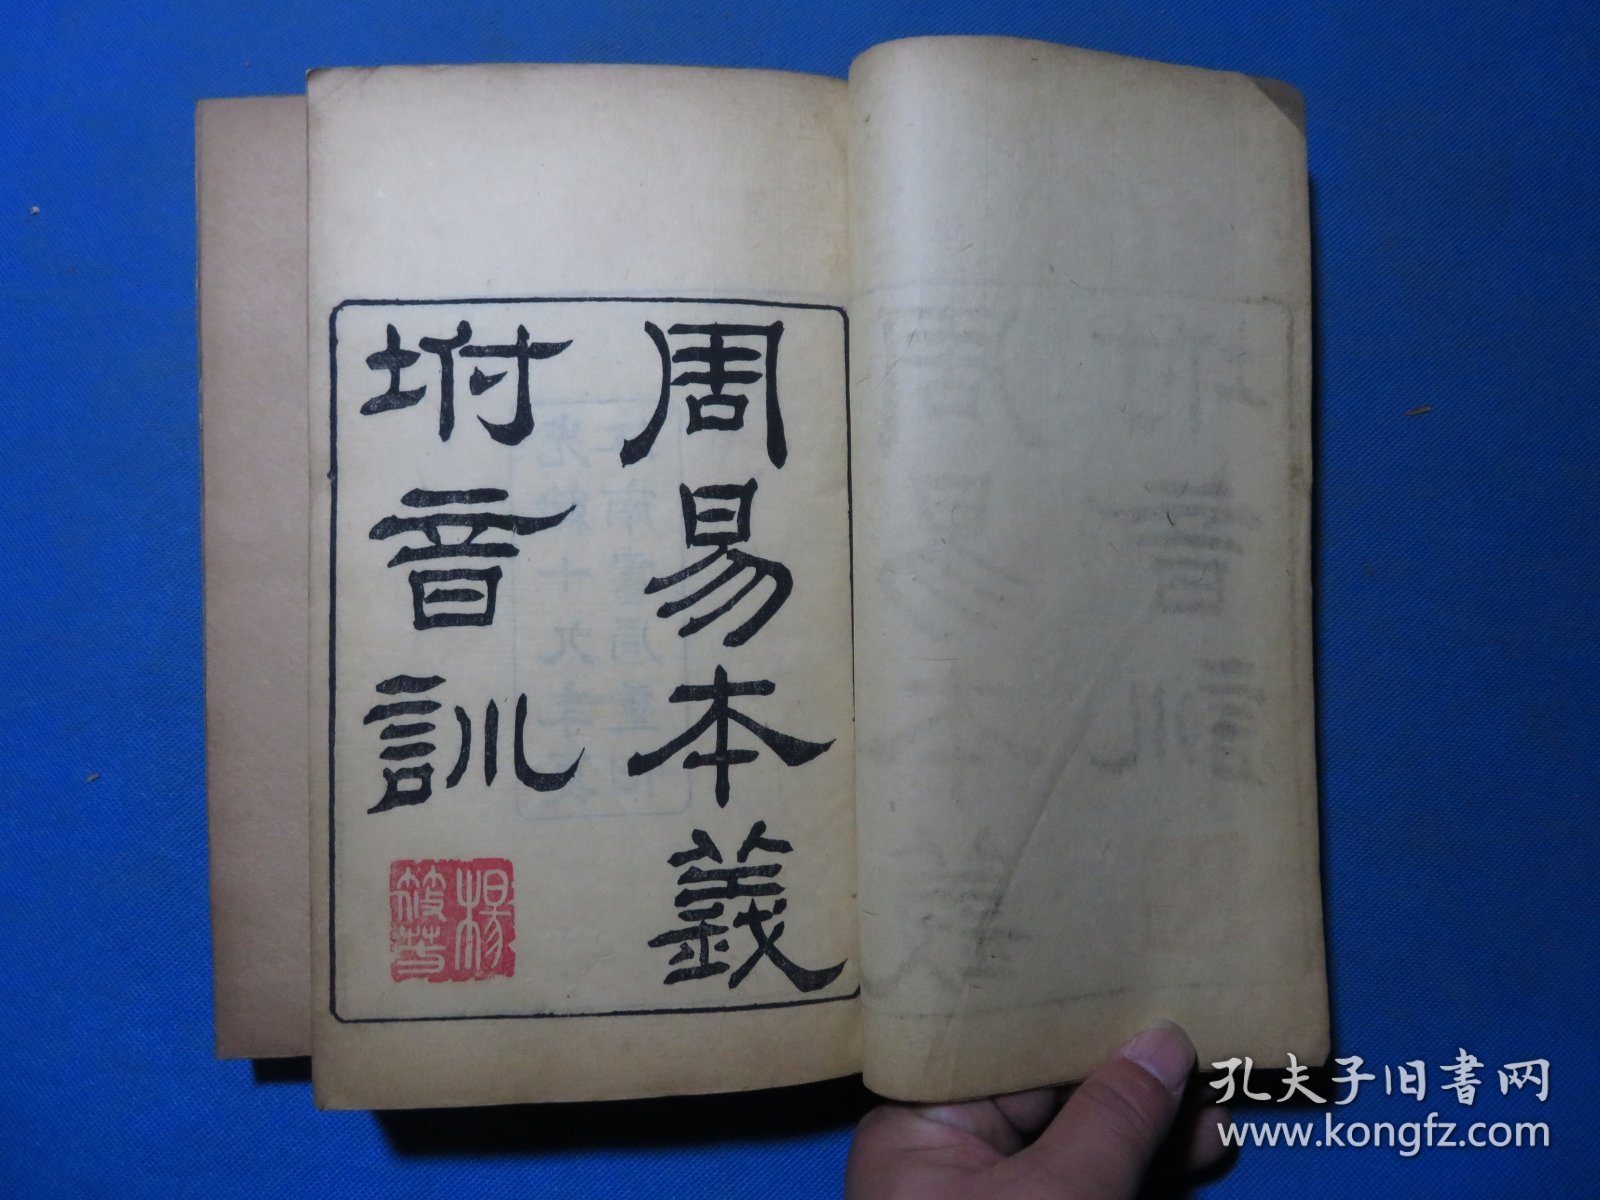 周易本義
坿音訓
楊
筱芳
孔夫子旧书网
www.kongfz.com